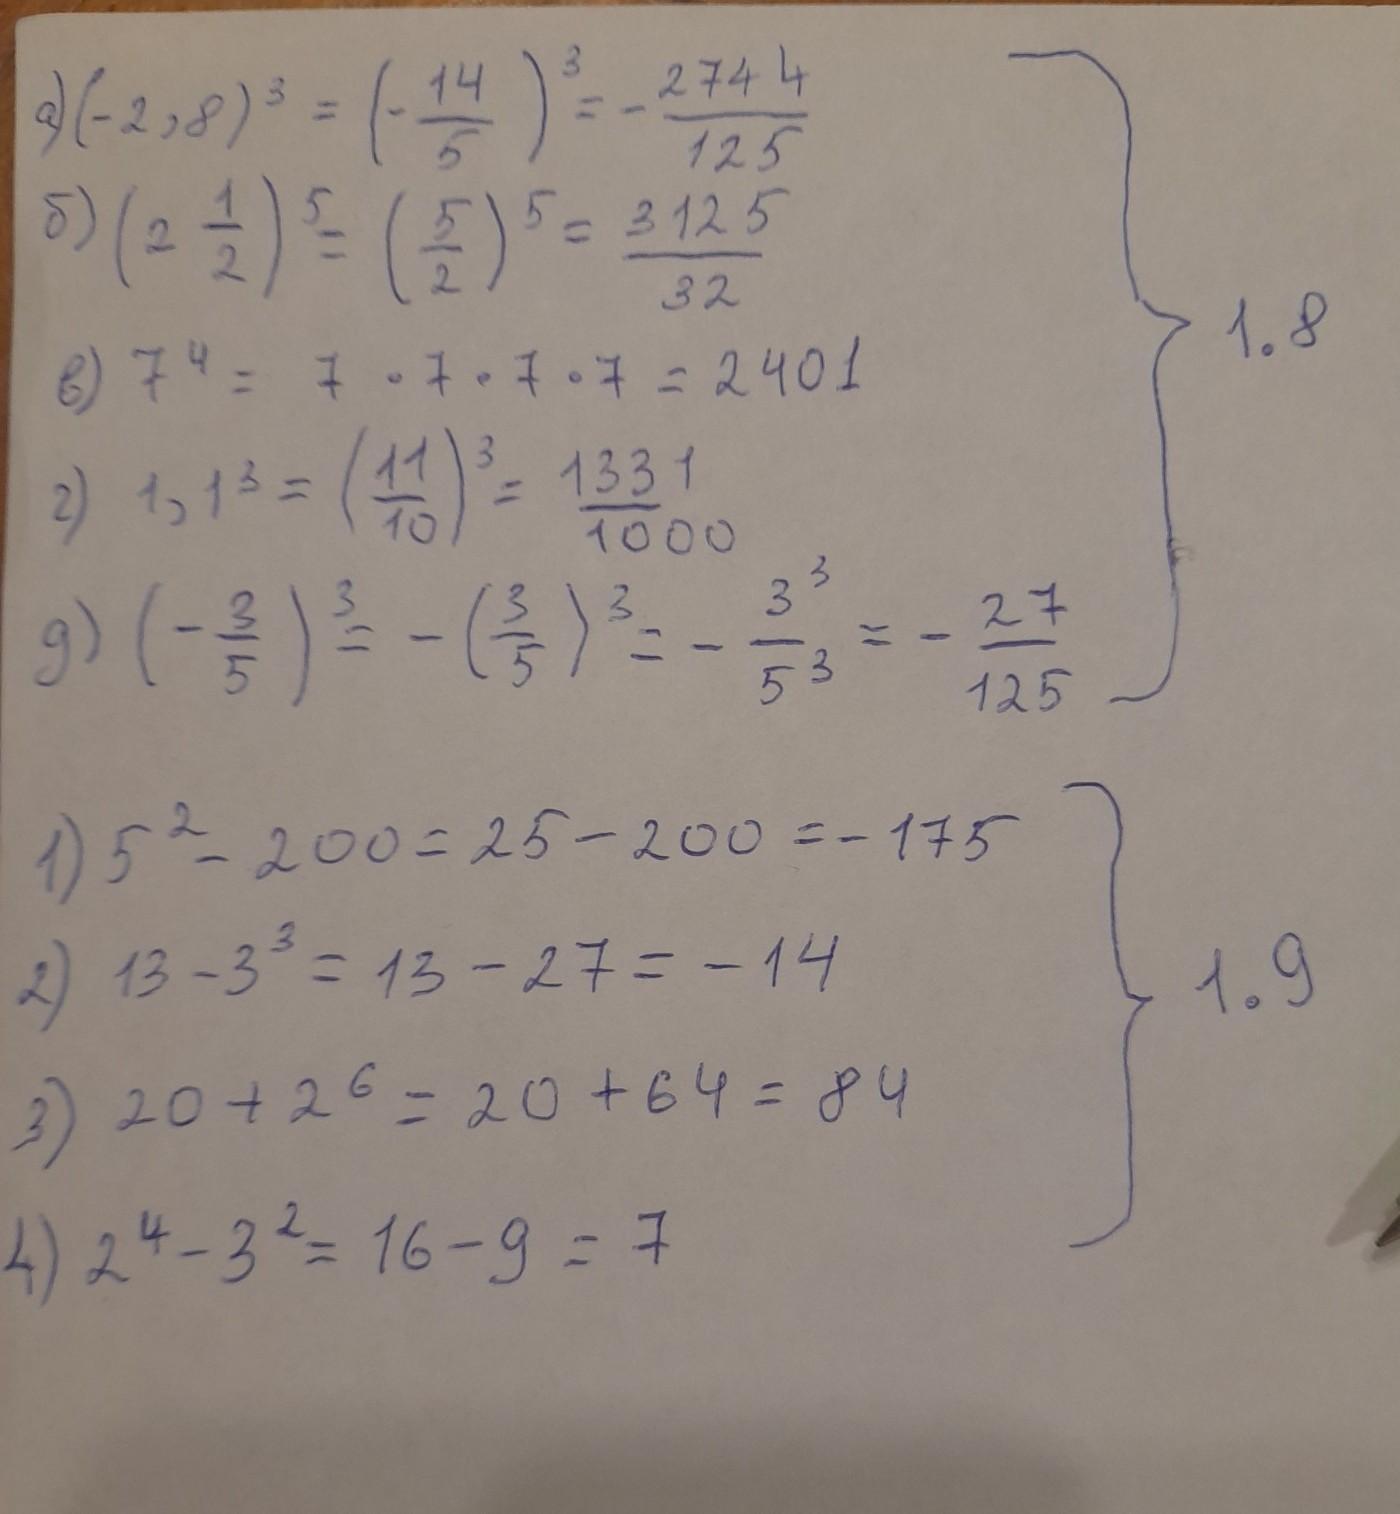 а) (-2,8)³ = (-14/5)³ = -2744/125
б) (2 1/2)⁵ = (5/2)⁵ = 3125/32
в) 7⁴ = 7 · 7 · 7 · 7 = 2401
г) 1,1³ = (11/10)³ = 1331/1000
д) (-3/5)³ = -(3/5)³ = -3³/5³ = -27/125
1.8
1) 5² - 200 = 25 - 200 = -175
2) 13 - 3³ = 13 - 27 = -14
3) 20 + 2⁶ = 20 + 64 = 84
4) 2⁴ - 3² = 16 - 9 = 7
1.9